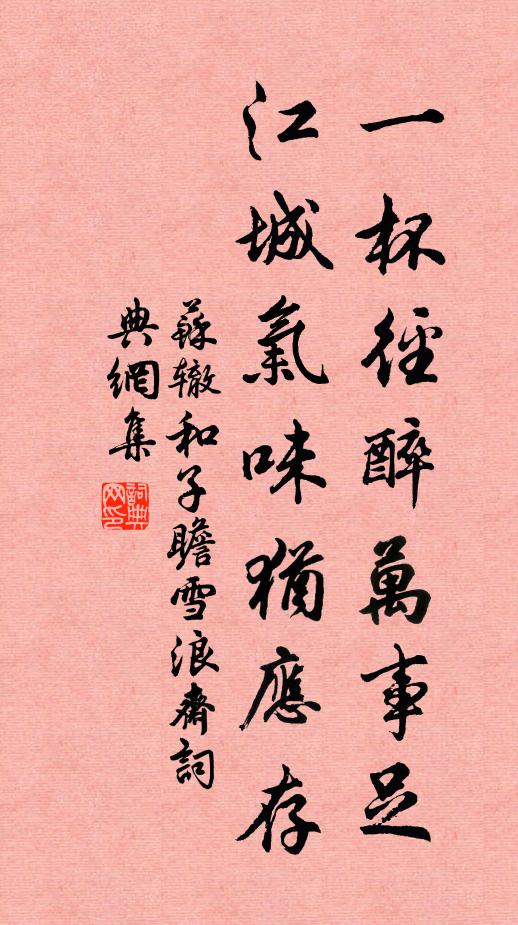 一杯徑醉萬事足
江城氣味猶應存
蘇轍和子瞻雪浪齋詞
典網集
詞典
网印